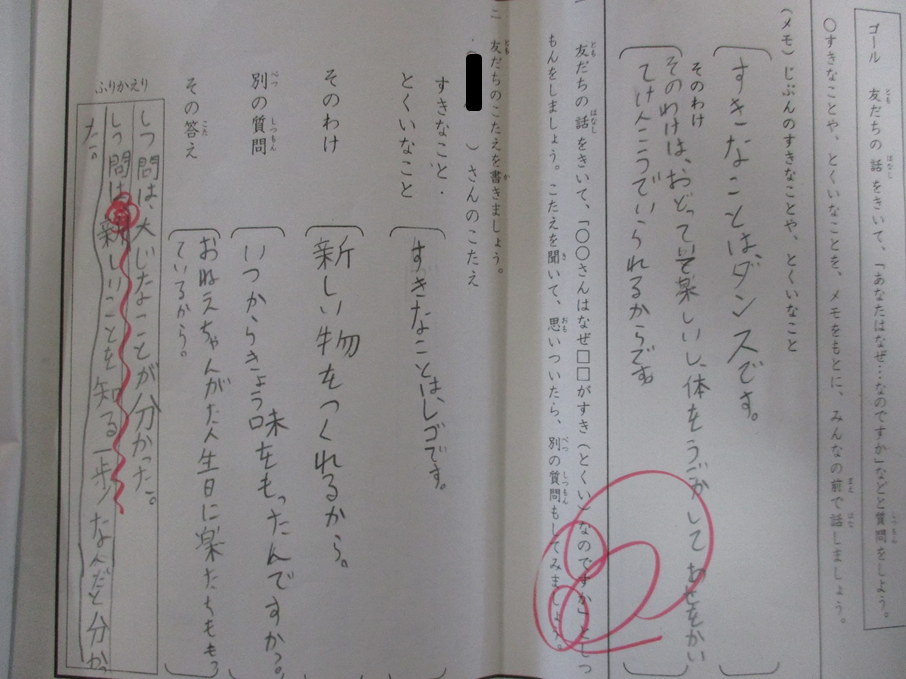 ゴール 友だちの話をきいて、「あなたはなぜ…なのですか」などと質問をしよう。
〇すきなことや、とくいなことを、メモをもとに、みんなの前で話しましょう。
(メモ)じぶんのすきなことや、とくいなこと
すきなことは、ダンスです。
そのわけ
そのわけは、おどっていて楽しいし、体をうごかしてあせをかい
てけんこうでいられるからです
一 友だちの話をきいて、「〇〇さんはなぜ□□がすき(とくい)なのですか」としつ
もんをしましょう。こたえを聞いて、思いついたら、別の質問もしてみましょう。
二 友だちのこたえを書きましょう。
)さんのこたえ
すきなこと・
とくいなこと
すきなことは、レゴです。
そのわけ
新しい物をつくれるから。
別の質問
いつからきょう味をもったんですか。
その答え
おねえちゃんがた人生日に
ているから。
ふりかえり
しつ問は、大じなことが分かった。
しつ問は新しいことを知る一歩なんだと分かっ
た。